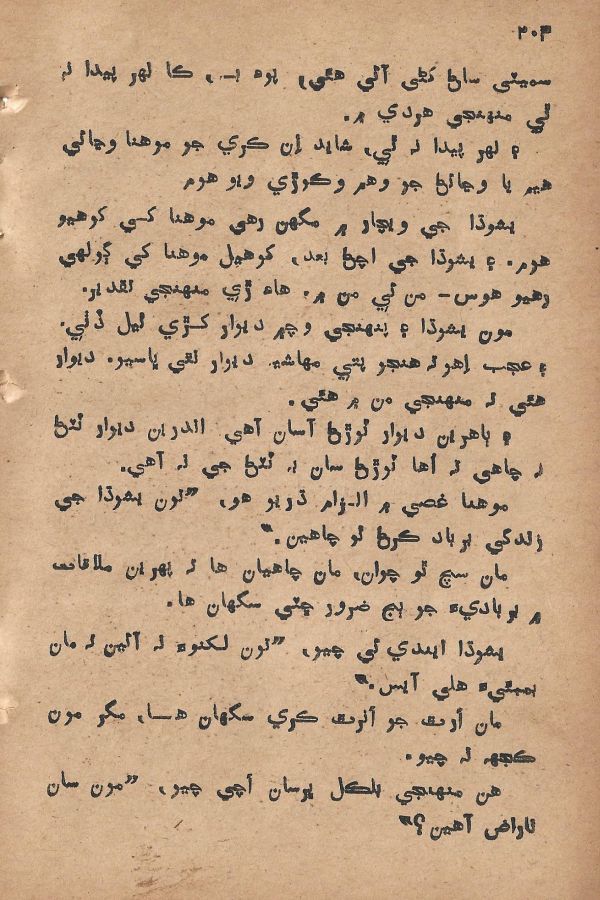 ۲۰۳
سميٽي ساڻ کڻي آئي هئي، پوءِ بہ، ڪا لهر پيدا نہ
ٿي منهنجي هردي ۾.
۽ لهر پيدا نہ ٿي، شايد اِن ڪري جو موهنا وڃائي
هيم يا وڃائڻ جو وهم وڪوڙي ويو هوم
يشوڌا جي ويچار ۾ مگهن رهي موهنا کسي کوهيو
هوم. ۽ يشوڌا جي اچڻ بعد، کوهيل موهنا کي ڳولهي
رهيو هوس- من ئي من ۾. هاءِ ڙي منهنجي تقدير.
مون يشوڌا ۽ پنهنجي وچ ۾ ديوار کڙي ٿيل ڏٺي.
۽ عجب اِهو تہ هنجو پتي مهاشيہ ديوار نٿي ڀاسيو. ديوار
هئي تہ منهنجي من ۾ هئي.
۽ ٻاهرين ديوار ٽوڙڻ آسان آهي اندرين ديوار ٽٽڻ
نہ چاهي تہ اُها ٽوڙڻ سان بہ ٽٽڻ جي نہ آهي.
موهنا غصي ۾ الزام ڌريو هو، ”تون يشوڌا جي
زندگي برباد ڪرڻ ٿو چاهين.“
مان سچ ٿو چوان، مان چاهيان ها تہ پهرين ملاقات
۾ بربادي۽ جو ٻج ضرور ڇٽي سگهان ها.
يشوڌا ايندي ئي چيو، ”تون لکنوءَ نہ آئين تہ مان
بمبئي۽ هلي آيس.“
مان اُرٿ جو اَنرٿ ڪري سگهان هسا، مگر مون
ڪجهہ نہ چيو.
هن منهنجي بلڪل ڀرسان اچي چيو، ”مون سان
ناراض آهين؟“